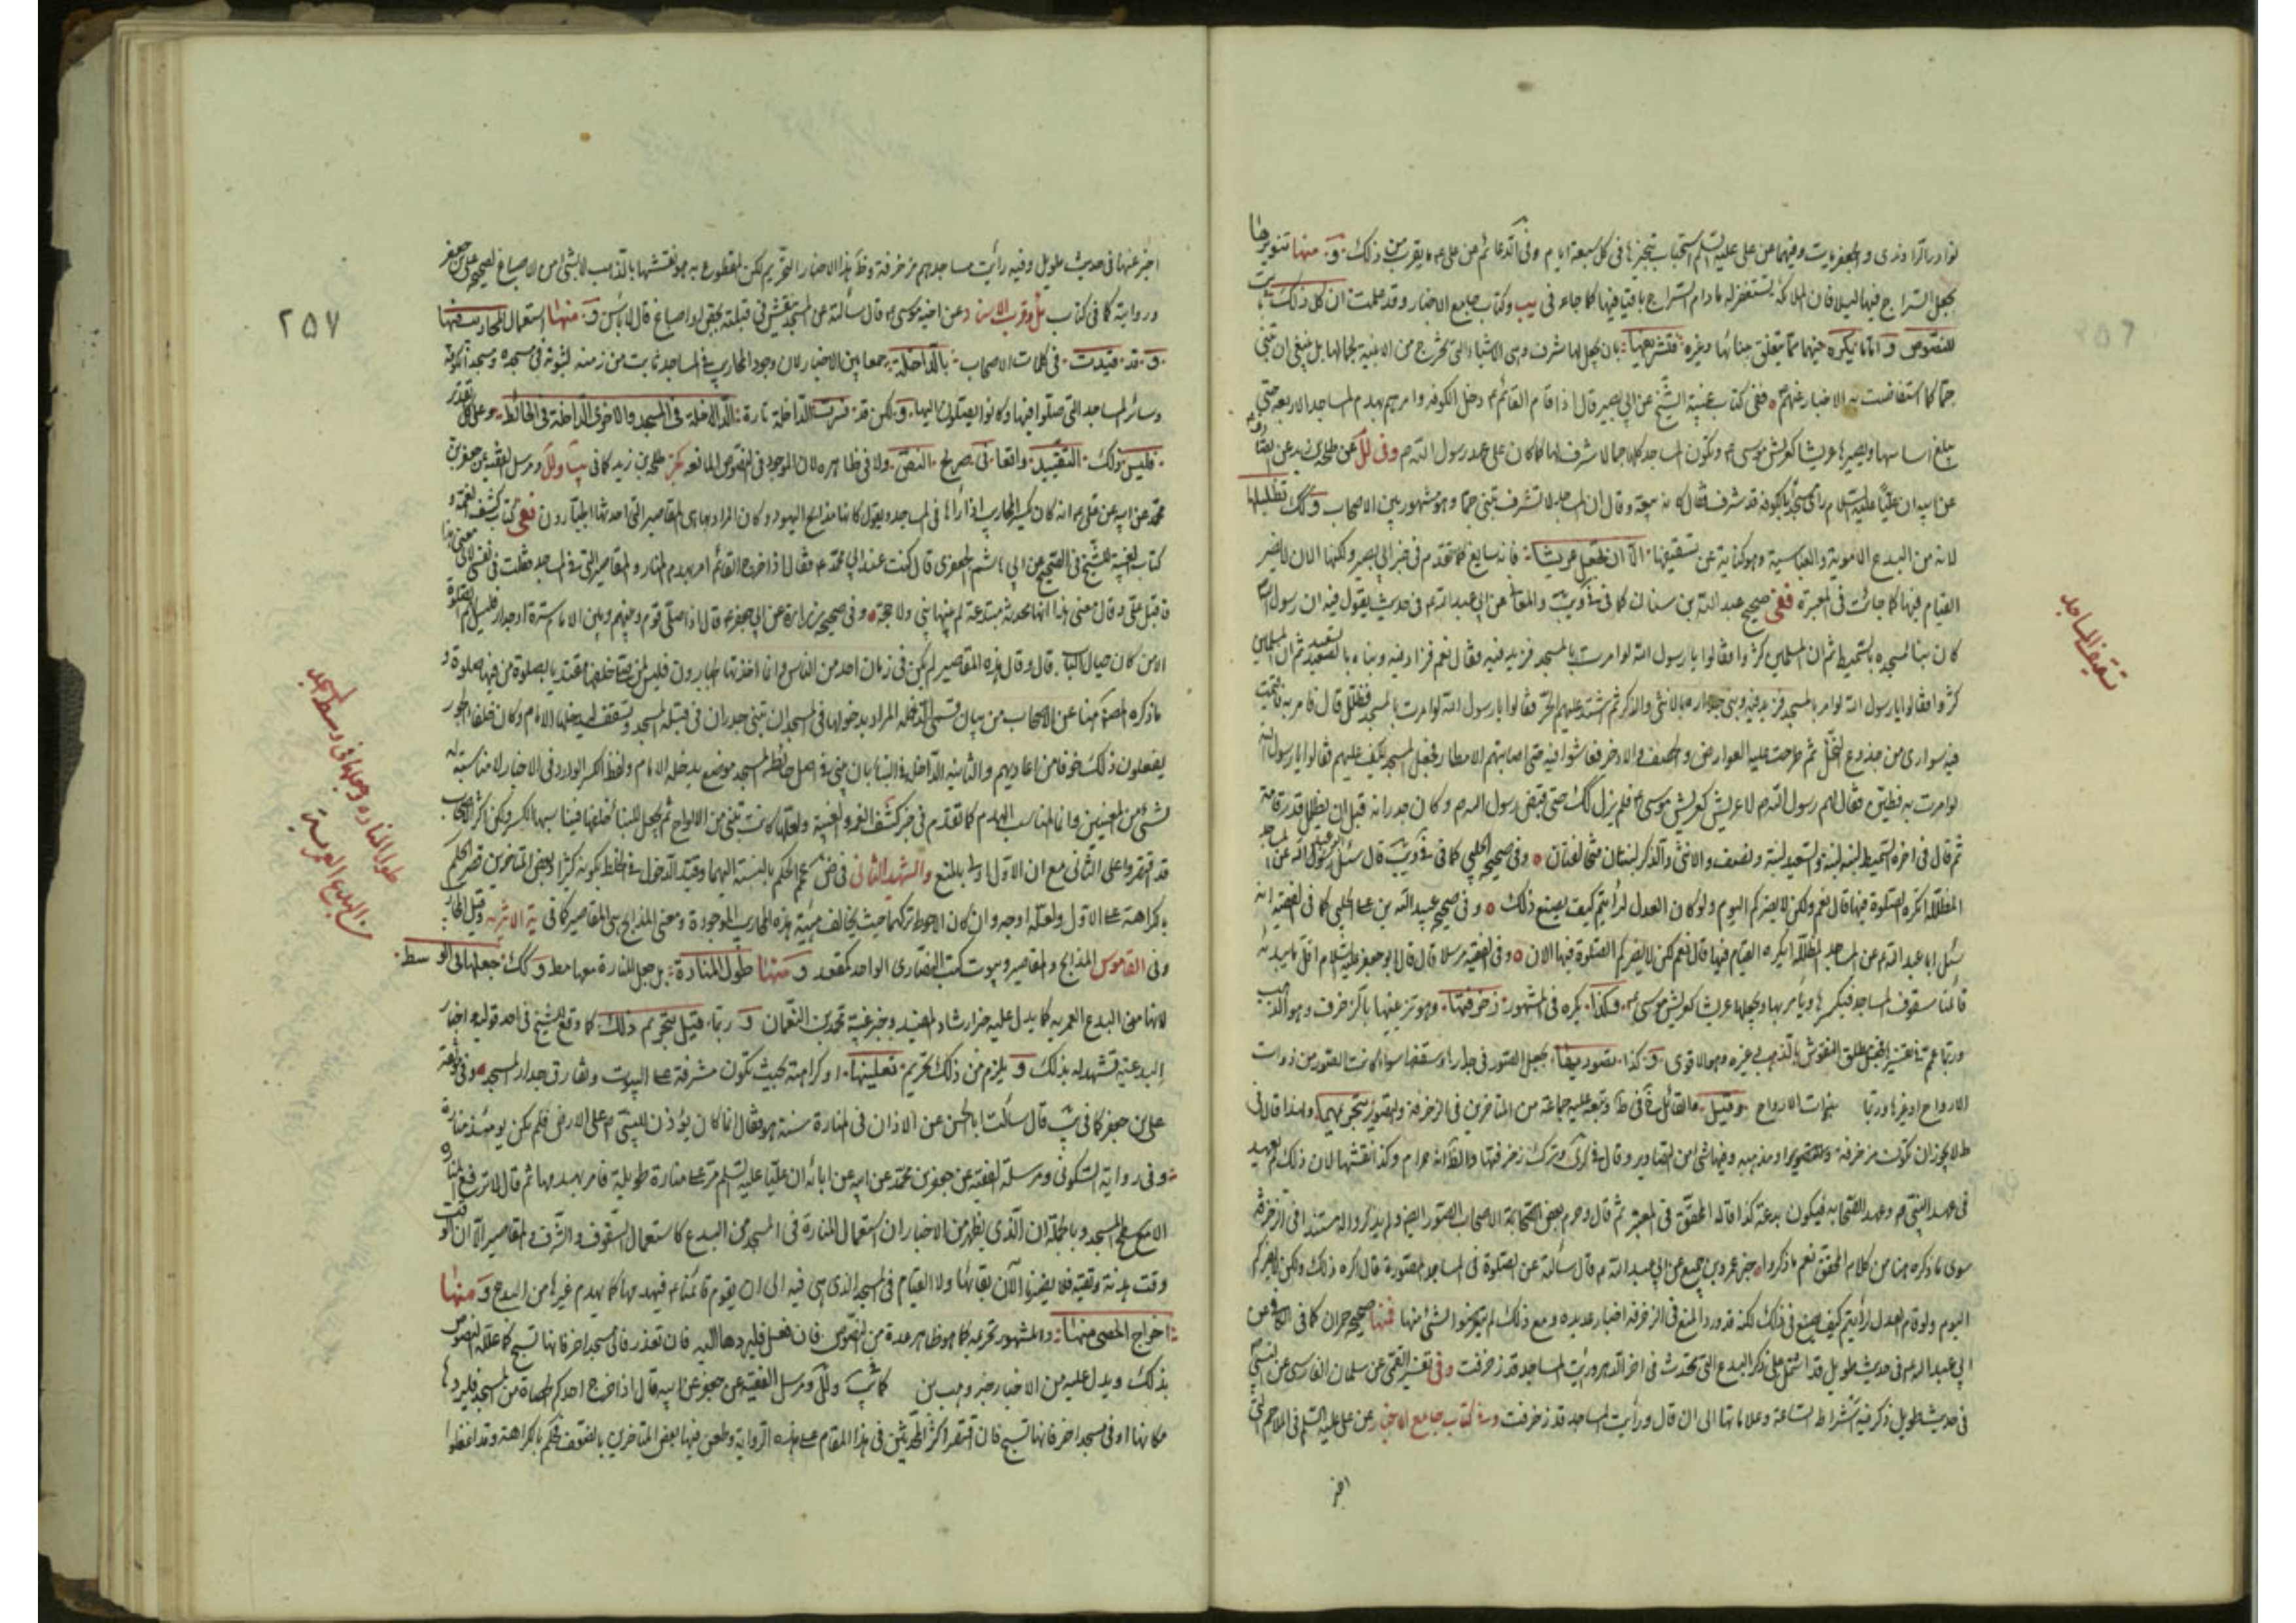 نوادر الراوندى والجعفريات وفيهما عن على عليه السلم استحباب تجميرها فى كل سبعة ايام وفى الدعائم عن على ما يقرب من ذلك و منها تنويرها
بجعل السراج فيها ليلا فان الملائكة يستغفر له مادام السراج باقيا فيها كما جاء فى يب وكتاب جامع الاخبار وقد علمت ان كل ذلك
للنصوص و اما ما يكره فيها مما يتعلق ببنائها وغيره فتشريفها بان يجعل لها شرف وهى الاشياء التى تخرج من الابنية لجمالها بل ينبغى ان تبنى
جما كما استفاضت به الاخبار عنهم ففى كتاب غيبة الشيخ عن ابى بصير قال اذا قام القائم دخل الكوفة وامر بهدم المساجد الاربعة حتى
يبلغ اساسها ويصيرها عريشا كعريش موسى وتكون المساجد كلها جما لا شرف لها كما كان على عهد رسول الله وفى لل عن طلحة بن زيد عن الصادق
عن ابيه ان عليا عليه السلام راى مسجدا بالكوفة قد شرف فقال كانه بيعة وقال ان المساجد لا تشرف تبنى جما وهو مشهور بين الاصحاب وكك تظليلها
لانه من البدع الاموية والعباسية وهو كناية عن تسقيفها الا ان تجعل عريشا فانه سايغ كما تقدم فى خبر ابى بصير ولكنها الان لا يضر
القيام فيها كما جائت فى المعتبرة ففى صحيح عبد الله بن سنان كما فى فى ويب والمعانى عن ابى عبد الله فى حديث يقول فيه ان رسول الله
كان بنا مسجده بالسميط ثم ان المسلمين كثروا فقالوا يا رسول الله لو امرت بالمسجد فزيد فيه فقال نعم فزاد فيه وبناه بالسعيد ثم ان المسلمين
كثروا فقالوا يا رسول الله لو امرت بالمسجد فزيد فيه وبنى جداره بالانثى والذكر ثم اشتد عليهم الحر فقالوا يا رسول الله لو امرت بالمسجد فظلل قال فامر به فاقيمت
فيه سوارى من جذوع النخل ثم طرحت عليه العوارض والخصف والاذخر فعاشوا فيه حتى اصابتهم الامطار فجعل المسجد يكف عليهم فقالوا يا رسول الله
لو امرت به فطين فقال لهم رسول الله لا عريش كعريش موسى فلم يزل كك حتى قبض رسول الله وكان جداره قبل ان يظلل قدر قامة
ثم قال فى اخره السميط لبنة لبنة والسعيد لبنة ونصف والانثى والذكر لبنتان متخالفتان وفى صحيح الحلبى كما فى فى ويب قال سئل عن المساجد
المظللة اتكره الصلوة فيها قال نعم ولكن لا يضركم اليوم ولو كان العدل لرأيتم كيف يصنع ذلك وفى صحيح عبيد الله بن على الحلبى كما فى الفقيه انه
سئل ابا عبد الله عن المساجد المظللة ايكره القيام فيها قال نعم لكن لا يضركم الصلوة فيها الان وفى الفقيه مرسلا قال قال ابو جعفر عليه السلام اول ما يبدء به
قائمنا سقوف المساجد فيكسرها ويأمر بها ويجعلها عريشا كعريش موسى وكذا يكره فى المشهور زخرفتها وهو تزيينها بالزخرف وهو الذهب
وربما عم فى تفسيره لمطلق النقوش بالذهب وغيره وهو الاقوى وكذا تصويرها بجعل الصور فى جدارها وسقفها سواء كانت الصور من ذوات
الارواح او غيرها وربما بذوات الارواح وقيل والقائل فى ط وتبعه عليه جماعة من المتاخرين فى الزخرفة والتصوير بتحريمها ولهذا قال فى
ط لا يجوز ان تكون مزخرفة او مذهبة وفيها شئ من التصاوير وقال فى كرى وترك زخرفتها والظاهر انه حرام وكذا نقشها لان ذلك لم يعهد
فى عهد النبى وعهد الصحابة فيكون بدعة كذا قاله المحقق فى المعتبر ثم قال وحرم بعض الاصحاب الصور ايضا ولم يذكروا له مستندا فى الزخرفة
سوى ما ذكره هنا من كلام المحقق نعم ذكروا خبر عمرو بن جميع عن ابى عبد الله قال سألته عن الصلوة فى المساجد المصورة قال اكره ذلك ولكن لا يضركم
اليوم ولو قام العدل لرأيتم كيف يصنع فى ذلك لكنه قد ورد المنع فى الزخرفة اخبار عديدة ومع ذلك لم يتعرضوا لشئ منها فمنها صحيح حمران كما فى الكافى عن
ابى عبد الله فى حديث طويل قد اشتمل على ذكر البدع التى تحدث فى اخر الدهر ورأيت المساجد قد زخرفت وفى تفسير القمى عن سلمان الفارسى عن النبى
فى حديث طويل ذكر فيه اشراط الساعة وعلاماتها الى ان قال ورأيت المساجد قد زخرفت وفى كتاب جامع الاخبار عن على عليه السلم فى الملاحم التى
اخبر
تسقيف المساجد
٢٥٧
اخبر عنها فى حديث طويل وفيه رأيت مساجدهم مزخرفة وظاهر هذا الاخبار التحريم لكن المقطوع به هو نقشها بالذهب لا بشئ من الاصباغ لصحيح على بن جعفر
وروايته كما فى كتاب ئل وقرب الاسناد عن اخيه موسى قال سألته عن المسجد ينقش فى قبلته بجص او اصباغ قال لا بأس و منها استعمال المحاريب فيها
و قد قيدت فى كلمات الاصحاب بالداخلة جمعا بين الاخبار لان وجود المحاريب فى المساجد ثابت من زمنه لثبوته فى مسجده ومسجد الكوفة
وسائر المساجد التى صلوا فيها وكانوا يصلون اليها و لكن قد فسرت الداخلة تارة الداخلة فى المسجد والاخرى الداخلة فى الحائط وعلى كل تقدير
فليس ذلك التقييد واقعا فى صريح النص ولا فى ظاهره لان الموجود فى النصوص المانعة خبر طلحة بن زيد كما فى يب ولل ومرسل الفقيه عن جعفر بن
محمد عن ابيه عن على انه كان يكسر المحاريب اذا رآها فى المساجد ويقول كانها مذابح اليهود وكان المراد بها هى المقاصير التى احدثها الجبارون ففى كتاب كشف الغمة و
كتاب الغيبة للشيخ فى الصحيح عن ابى هاشم الجعفرى قال كنت عند ابى محمد فقال اذا خرج القائم امر بهدم المنار والمقاصير التى فى المساجد فقلت فى نفسى لاى معنى هذا
فاقبل على وقال معنى هذا انها محدثة مبتدعة لم يبنها نبى ولا حجة وفى صحيح زرارة عن ابى جعفر قال اذا صلى قوم وبينهم وبين الامام سترة او جدار فليس لهم الصلوة
الا من كان حيال الباب قال وقال هذه المقاصير لم يكن فى زمان احد من الناس وانما احدثها الجبارون فليس لمن صلى خلفها مقتديا بصلوة من فيها صلوة و
ما ذكره المصنف هنا عن الاصحاب من بيان قسمى الداخلة المراد بدخولها فى المسجد ان تبنى جدران فى قبلة المسجد وتسقف ليدخلها الامام وكان خلفاء الجور
يفعلون ذلك خوفا من اعاديهم والثانية الداخلة فى البناء بان يبنى فى اصل حائط المسجد موضع يدخله الامام ولفظ الكسر الوارد فى الاخبار لا مناسبة له
بشئ من المعنيين وانما المناسب الهدم كما تقدم فى خبر كشف الغمة والغيبة ولعلها كانت تبنى من الالواح ثم يجعل للبناء خلفها فيناسبها الكسر ولكن اكثر الاصحاب
قد اقتصروا على الثانى مع ان الاول اولى بالمنع والشهيد الثانى فى ضه عمم الحكم بالنسبة اليهما وقيد الدخول فى الحائط بكونه كثيرا وبعض المتاخرين قصر الحكم
بالكراهة على الاول ولعله اوجه وان كان الاحوط تركهما حيث يخالف هيئة هذه المحاريب الموجودة ومعنى المذابح هى المقاصير كما فى ية الاثرية وقيل المحاريب
وفى القاموس المذابح والمقاصير وبيوت كتب النصارى الواحد كمقعد و منها طول المنارة بل جعل المنارة معها مط و كك جعلها فى الوسط
لانها من البدع العمرية كما يدل عليه خبر ارشاد المفيد وخبر غيبة محمد بن النعمان و ربما قيل بتحريم ذلك كما وقع للشيخ فى احد قوليه واخبار
البدعية تشهد له بذلك و يلزم من ذلك تحريم تعليتها او كراهته بحيث تكون مشرفة على البيوت وتفارق جدار المسجد وفى موثقة
على بن جعفر كما فى يب قال سألت ابا الحسن عن الاذان فى المنارة سنة هو فقال انما كان يؤذن للنبى على الارض فلم يكن يومئذ منارة
وفى رواية السكونى ومرسلة الفقيه عن جعفر بن محمد عن ابيه عن ابائه ان عليا عليه السلم مر على منارة طويلة فامر بهدمها ثم قال لا ترفع المنارة
الا مع سطح المسجد وبالجملة ان الذى يظهر من الاخبار ان استعمال المنارة فى المسجد من البدع كاستعمال السقوف والشرف والمقاصير الا ان الوقت
وقت هدنة وتقية فلا يضرنا الان بقائها ولا القيام فى المسجد الذى هى فيه الى ان يقوم قائمنا فيهدمها كما يهدم غيرها من البدع و منها
اخراج الحصى منها والمشهور تحريمه كما هو ظاهر عدة من النصوص فان فعل فليردها اليه فان تعذر فالى مسجد اخر فانها تسبح كما علله النصوص
بذلك ويدل عليه من الاخبار خبر وهب بن كما فى يب ولل ومرسل الفقيه عن جعفر عن ابيه قال اذا اخرج احدكم الحصاة من المسجد فليردها
مكانها او فى مسجد اخر فانها تسبح فان اقتصر اكثر المحدثين فى هذا المقام على هذه الرواية وطعن فيها بعض المتاخرين بالضعف فحكم بالكراهة وقد اغفلوا
طول المنارة وجعلها فى وسط المسجد
من البدع العمرية